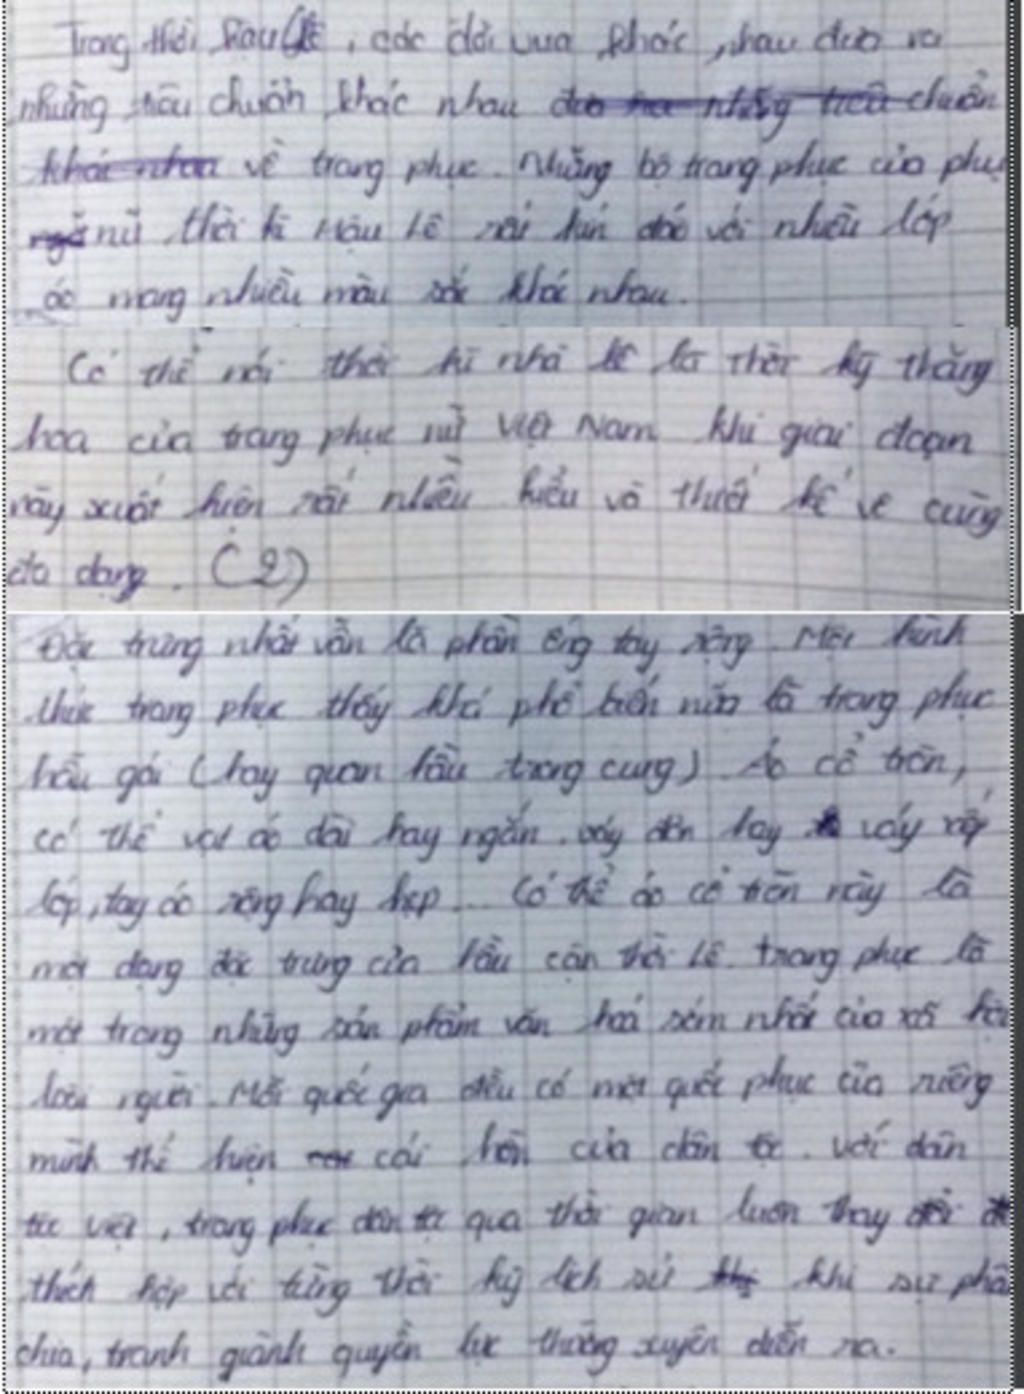 Trong thời Hậu Lê, các đời vua khác nhau đưa ra
những tiêu chuẩn khác nhau đưa ra những tiêu chuẩn
khác nhau về trang phục. Những bộ trang phục của phụ
nữ thời kì Hậu Lê rất kín đáo với nhiều lớp
áo mang nhiều màu sắc khác nhau.
Có thể nói thời kì nhà lê là thời kỳ thăng
hoa của trang phục nữ Việt Nam khi giai đoạn
này xuất hiện rất nhiều kiểu và thiết kế vô cùng
đa dạng. (2)
Đặc trưng nhất vẫn là phần ống tay rộng. Một hình
thức trang phục thấy khá phổ biến nữa là trang phục
hầu gái (hay quan hầu trong cung) Áo cổ tròn,
có thể vạt áo dài hay ngắn. váy đơn hay váy xếp
lớp, tay áo rộng hay hẹp... Có thể áo cổ tròn này là
một dạng đặc trưng của hầu cận thời Lê. trang phục là
một trong những sản phẩm văn hoá sớm nhất của xã hội
loài người. Mỗi quốc gia đều có một quốc phục của riêng
mình thể hiện cái hồn của dân tộc. với dân
tộc việt, trang phục dân tộc qua thời gian luôn thay đổi để
thích hợp với từng thời kỳ lịch sử khi sự phân
chia, tranh giành quyền lực thường xuyên diễn ra.